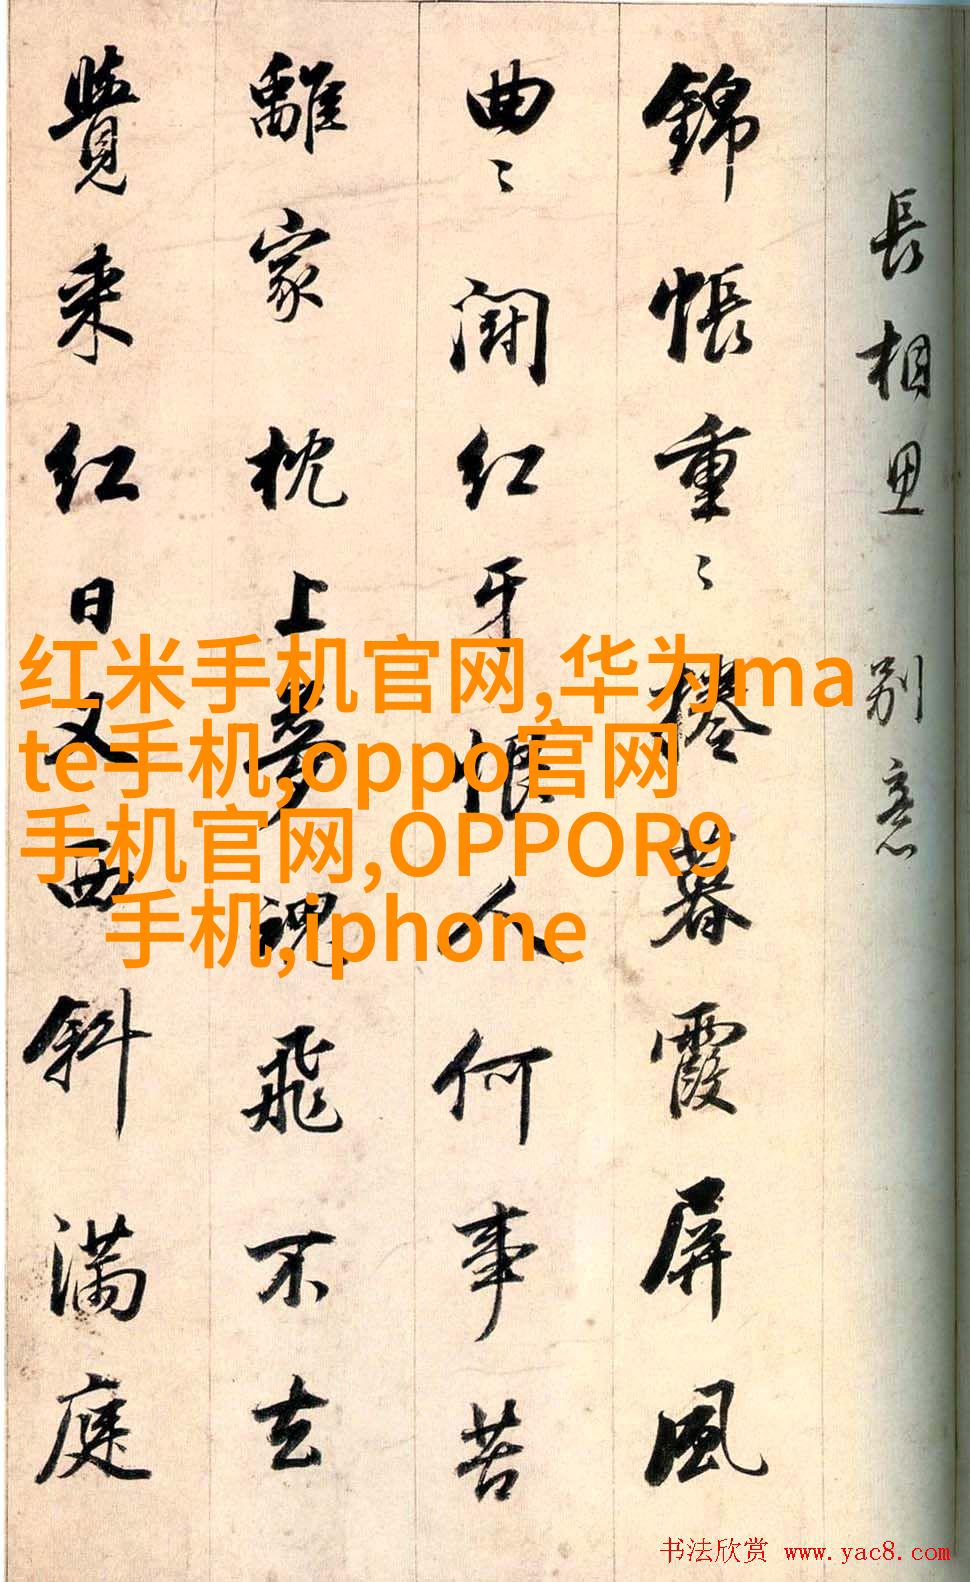 長相思 別意
錦帳重〻捲暮霞屏風
曲〻鬪紅牙恨人何事苦
離家枕上夢魂飛不去
覺来紅日又西斜満庭
红米手机官网,华为ma
te手机,oppo官网
手机官网,OPPOR9
手机,iphone
书法欣赏 www.yac8.com